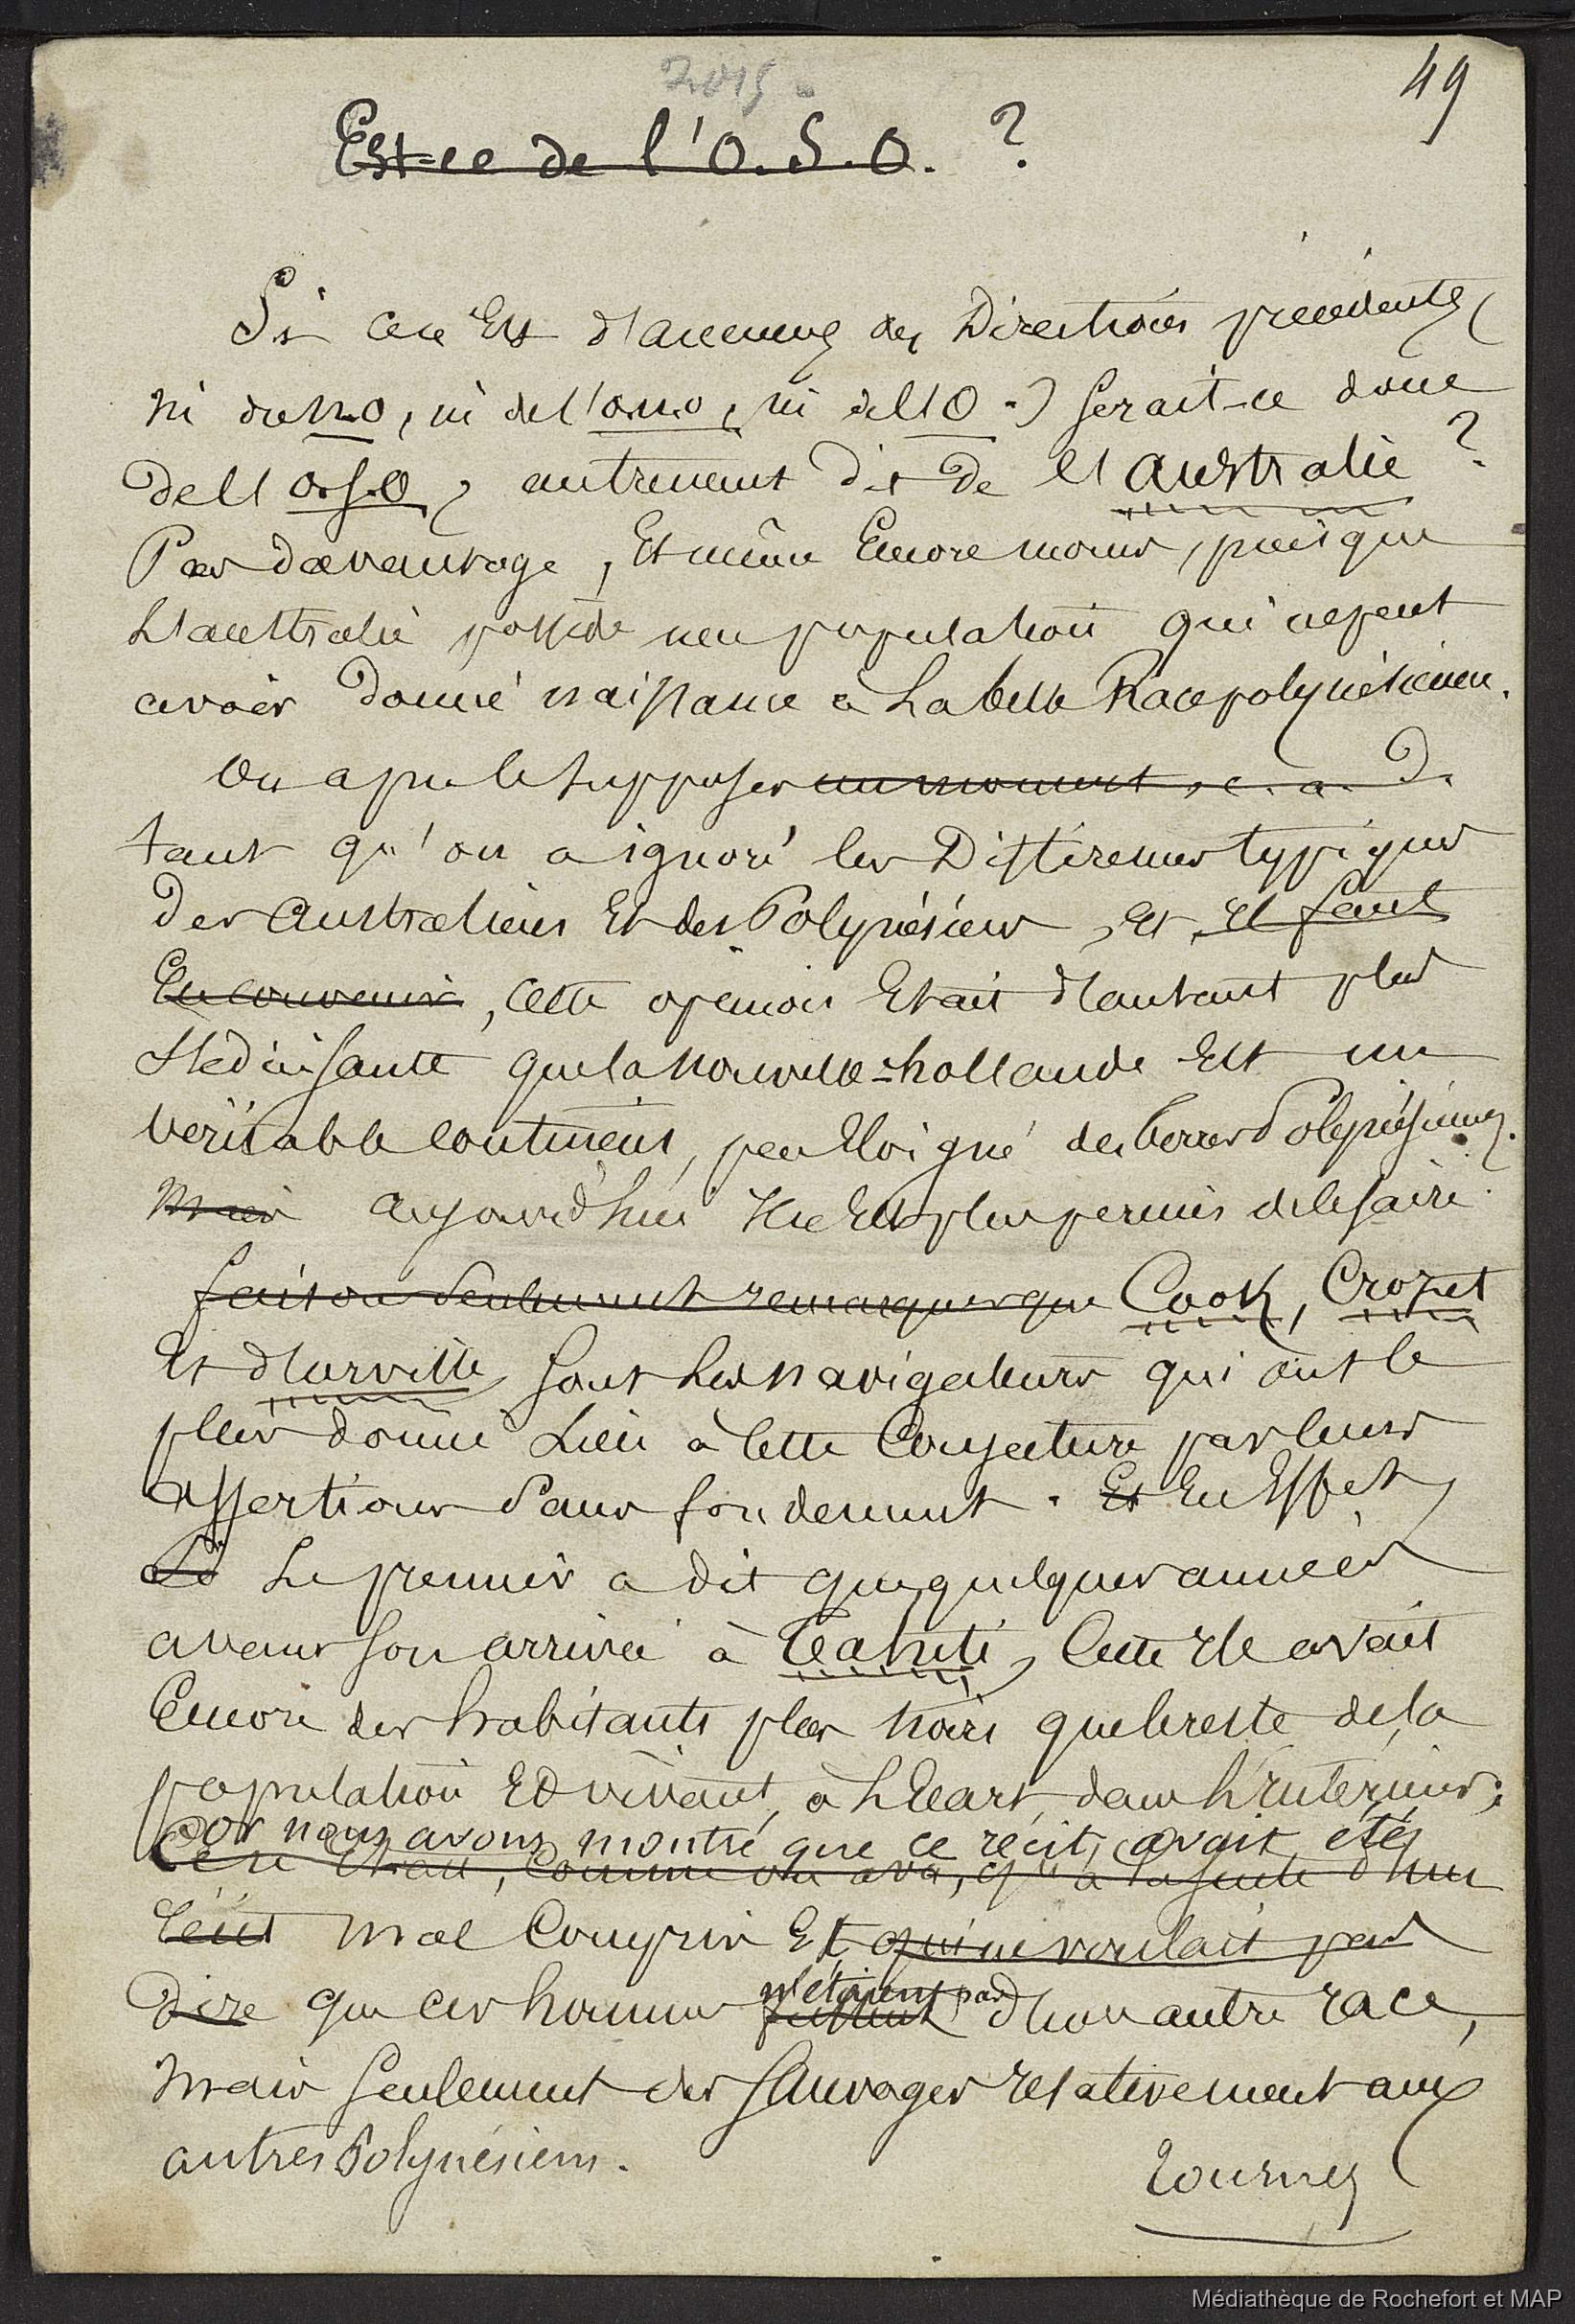 2015.
49
Est-ce de l'O. S. O. ?
Si ce n'est d'aucune des Directions précédentes,
ni du N.O, ni de l'O.N.O, ni de l'O -) serait-ce donc
de l'O.S.O, autrement dit de l'Australie ?
Pas davantage, Et même Encore moins, puisque
L'australie possède une population qui ne peut
avoir donné naissance à La belle Race polynésienne.
On a pu le supposer un moment, c. a. D.
tant qu'on a ignoré les Différences typiques
Des Australiens Et des Polynésiens, Et, il faut
En convenir, cette opinion Etait d'autant plus
séduisante que la nouvelle-hollande Est un
véritable continent, peu Eloigné des terres Polynésiennes.
Mais aujourd'hui il n'est plus permis de le faire.
faisons seulement remarquer que Cook, Crozet
Et d'urville, sont Les navigateurs qui ont le
plus donné Lieu à cette Conjecture par leurs
assertions sans fondement. Et En Effet,
Si Le premier a dit que quelques années
avant son arrivée à Tahiti, cette Ile avait
Encore des habitants plus noirs que le reste de la
population Et vivant, à L'Ecart, dans L'Intérieur ;
or nous avons montré que ce récit avait été
Ce n'était, comme on a vu, qu'à la suite d'un
récit mal Compris Et qui ne voulait pas
Dire que ces hommes fussent n'étaient pas d'une autre race,
mais seulement des sauvages relativement aux
autres Polynésiens.
Tournez
Médiathèque de Rochefort et MAP